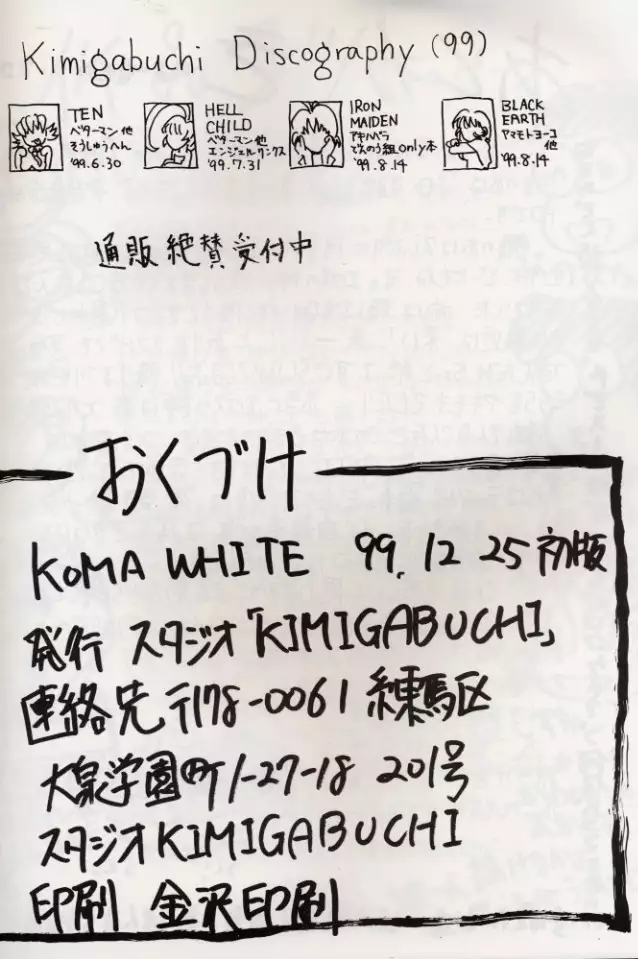 Kimigabuchi Discography (99)
TEN
ベターマン他
そうしゅうへん
'99.6.30
HELL
CHILD
ベターマン他
エンジェルリンクス
'99.7.31
IRON
MAIDEN
アキハバラ
でんのう組only本
'99.8.14
BLACK
EARTH
アマモトヨーコ
他
'99.8.14
通販 絶賛 受付中
おくづけ
KOMA WHITE 99. 12 25 初版
発行 スタジオ「KIMIGABUCHI」
連絡先 〒178-0061 練馬区
大泉学園町1-27-18 201号
スタジオKIMIGABUCHI
印刷 金沢印刷